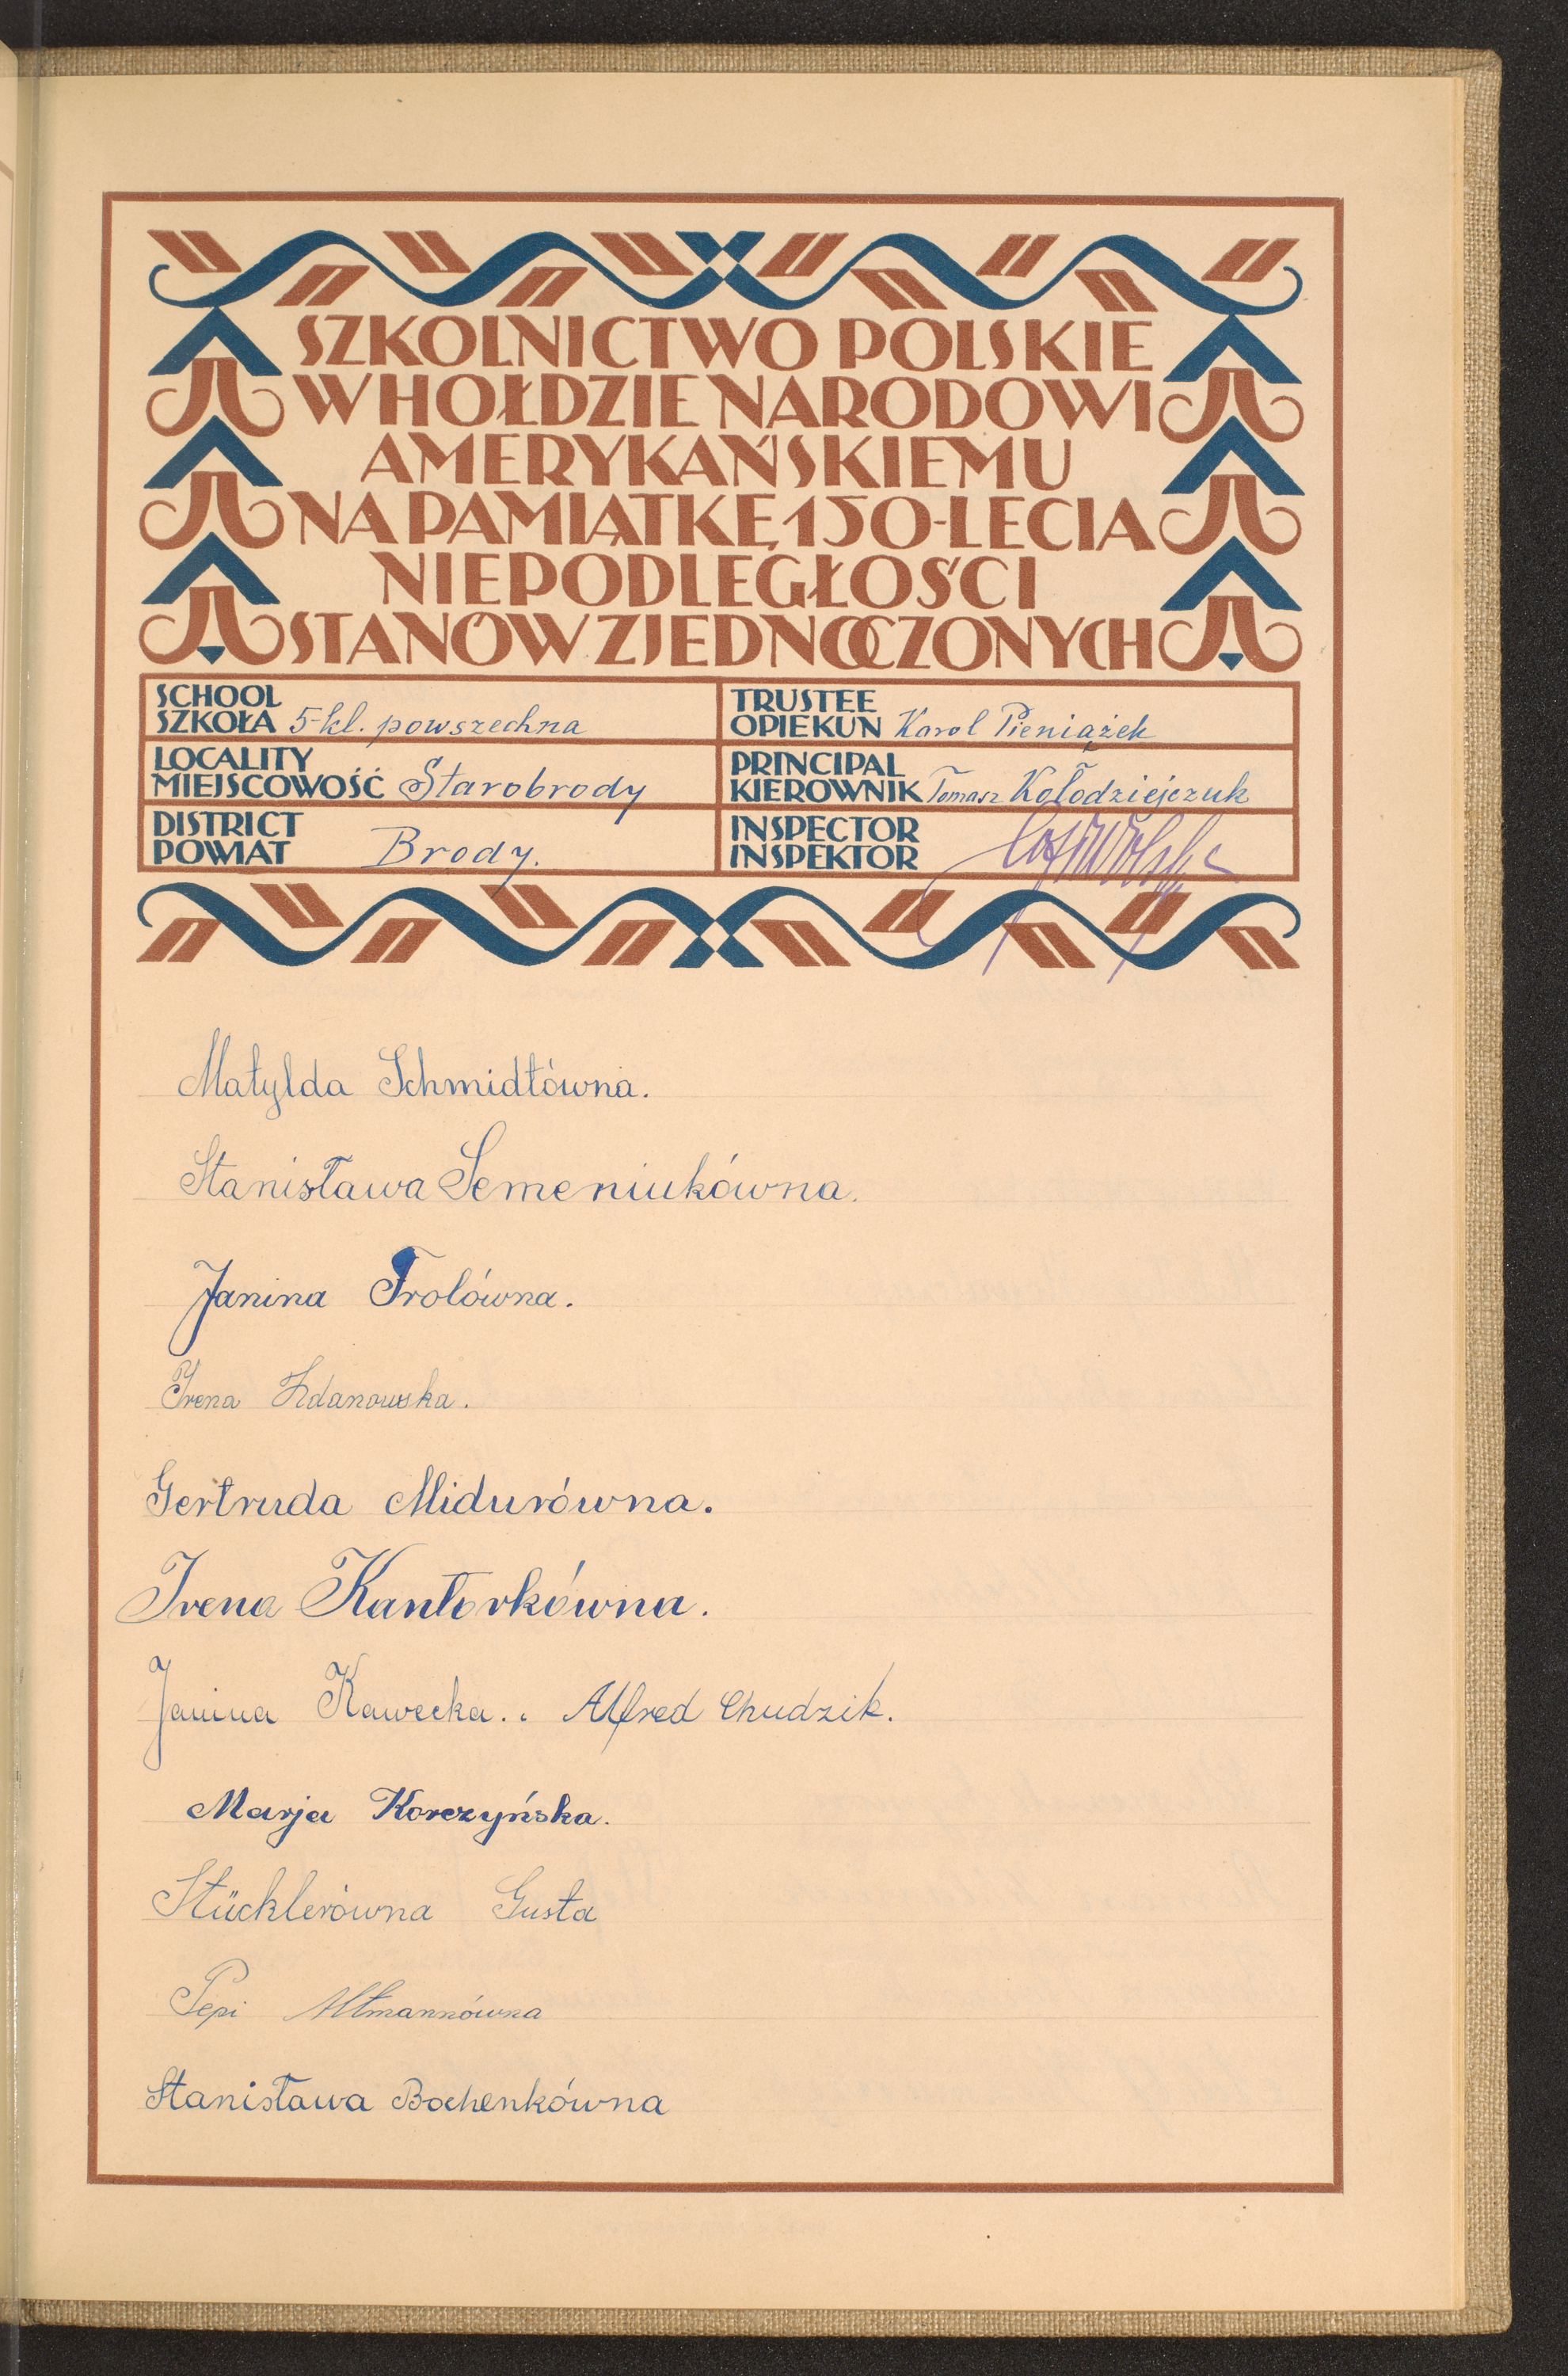 SZKOLNICTWO POLSKIE
W HOŁDZIE NARODOWI
AMERYKAŃSKIEMU
NA PAMIĄTKĘ 150-LECIA
NIEPODLEGŁOŚCI
STANÓW ZJEDNOCZONYCH
SCHOOL
SZKOŁA 5-kl. powszechna
TRUSTEE
OPIEKUN Karol Pieniążek
LOCALITY
MIEJSCOWOŚĆ Starobrody
PRINCIPAL
KIEROWNIK Tomasz Kołodziejczuk
DISTRICT
POWIAT Brody.
INSPECTOR
INSPEKTOR
Matylda Schmidtówna.
Stanisława Semeniukówna.
Janina Frolówna.
Irena Zdanowska.
Gertruda Midurówna.
Irena Kantorkówna.
Janina Kawecka.. Alfred Chudzik.
Marja Korczyńska.
Stücklerówna Gusta
Pepi Altmannówna
Stanisława Bochenkówna